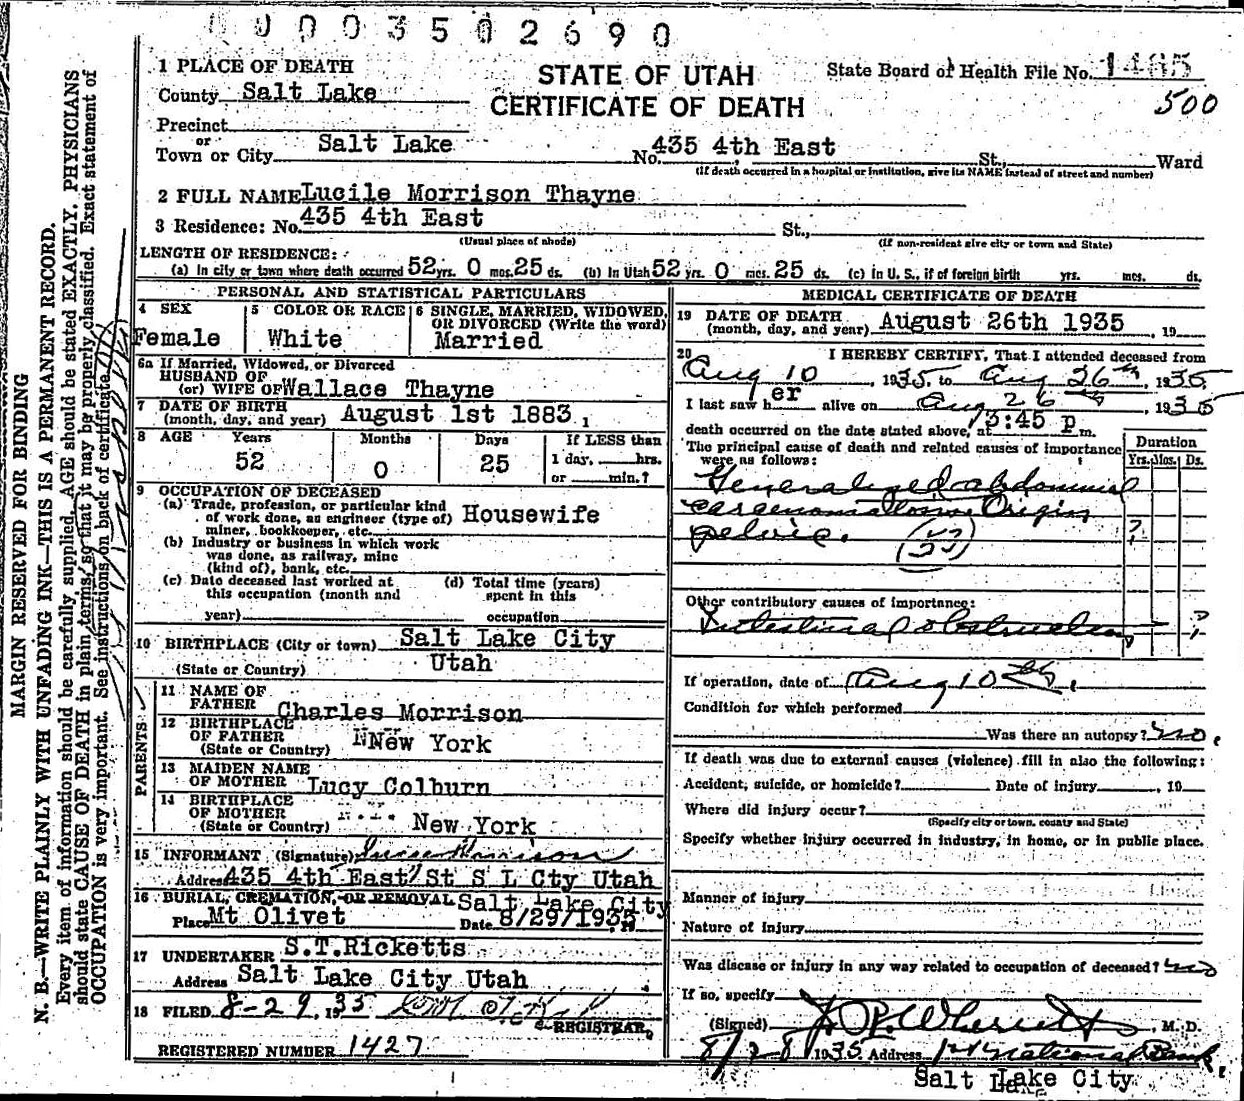 0003502690
STATE OF UTAH
CERTIFICATE OF DEATH
State Board of Health File No. 1485
500
1 PLACE OF DEATH
County Salt Lake
Precinct
or
Town or City Salt Lake No. 435 4th East St., Ward
(If death occurred in a hospital or institution, give its NAME instead of street and number)
2 FULL NAME Lucile Morrison Thayne
3 Residence: No. 435 4th East St.,
(Usual place of abode) (If non-resident give city or town and State)
LENGTH OF RESIDENCE:
(a) In city or town where death occurred 52 yrs. 0 mos. 25 ds. (b) In Utah 52 yrs. 0 mos. 25 ds. (c) in U. S., if of foreign birth yrs. mos. ds.
PERSONAL AND STATISTICAL PARTICULARS
4 SEX
Female
5 COLOR OR RACE
White
6 SINGLE, MARRIED, WIDOWED,
OR DIVORCED (Write the word)
Married
6a If Married, Widowed, or Divorced
HUSBAND OF
(or) WIFE OF Wallace Thayne
7 DATE OF BIRTH
(month, day, and year) August 1st 1883
8 AGE Years Months Days If LESS than
52 0 25 1 day, hrs.
or min.?
9 OCCUPATION OF DECEASED
(a) Trade, profession, or particular kind
of work done, as engineer (type of) Housewife
miner, bookkeeper, etc.
(b) Industry or business in which work
was done, as railway, mine
(kind of), bank, etc.
(c) Date deceased last worked at (d) Total time (years)
this occupation (month and spent in this
year) occupation
10 BIRTHPLACE (City or town) Salt Lake City
(State or Country) Utah
PARENTS
11 NAME OF
FATHER Charles Morrison
12 BIRTHPLACE
OF FATHER New York
(State or Country)
13 MAIDEN NAME
OF MOTHER Lucy Colburn
14 BIRTHPLACE
OF MOTHER
(State or Country) New York
15 INFORMANT (Signature) Morrison
Address 435 4th East St S L Cty Utah
16 BURIAL, CREMATION, OR REMOVAL Salt Lake City
Place Mt Olivet Date 8/29/1935
17 UNDERTAKER S.T.Ricketts
Address Salt Lake City Utah
18 FILED 8-29, 1935
REGISTRAR
REGISTERED NUMBER 1427
MEDICAL CERTIFICATE OF DEATH
19 DATE OF DEATH
(month, day, and year) August 26th 1935, 19
20 I HEREBY CERTIFY, That I attended deceased from
Aug 10, 1935, to Aug 26th, 1935
I last saw her alive on Aug 26th, 1935
death occurred on the date stated above, at 3:45 P m.
The principal cause of death and related causes of importance
were as follows:
Duration
Yrs. Mos. Ds.
Generalized abdominal
carcinomatous Origin
pelvic. ?
(53)
Other contributory causes of importance:
Intestinal obstruction ?
If operation, date of Aug 10th
Condition for which performed
Was there an autopsy? no.
If death was due to external causes (violence) fill in also the following:
Accident, suicide, or homicide? Date of injury , 19
Where did injury occur?
(Specify city or town, county and State)
Specify whether injury occurred in industry, in home, or in public place.
Manner of injury
Nature of injury
Was disease or injury in any way related to occupation of deceased? no
If so, specify
(Signed) , M. D.
8/28 1935 Address 1st National Bank,
Salt Lake City
MARGIN RESERVED FOR BINDING
N. B.—WRITE PLAINLY WITH UNFADING INK—THIS IS A PERMANENT RECORD.
Every item of information should be carefully supplied. AGE should be stated EXACTLY. PHYSICIANS
should state CAUSE OF DEATH in plain terms, so that it may be properly classified. Exact statement of
OCCUPATION is very important. See instructions on back of certificate.